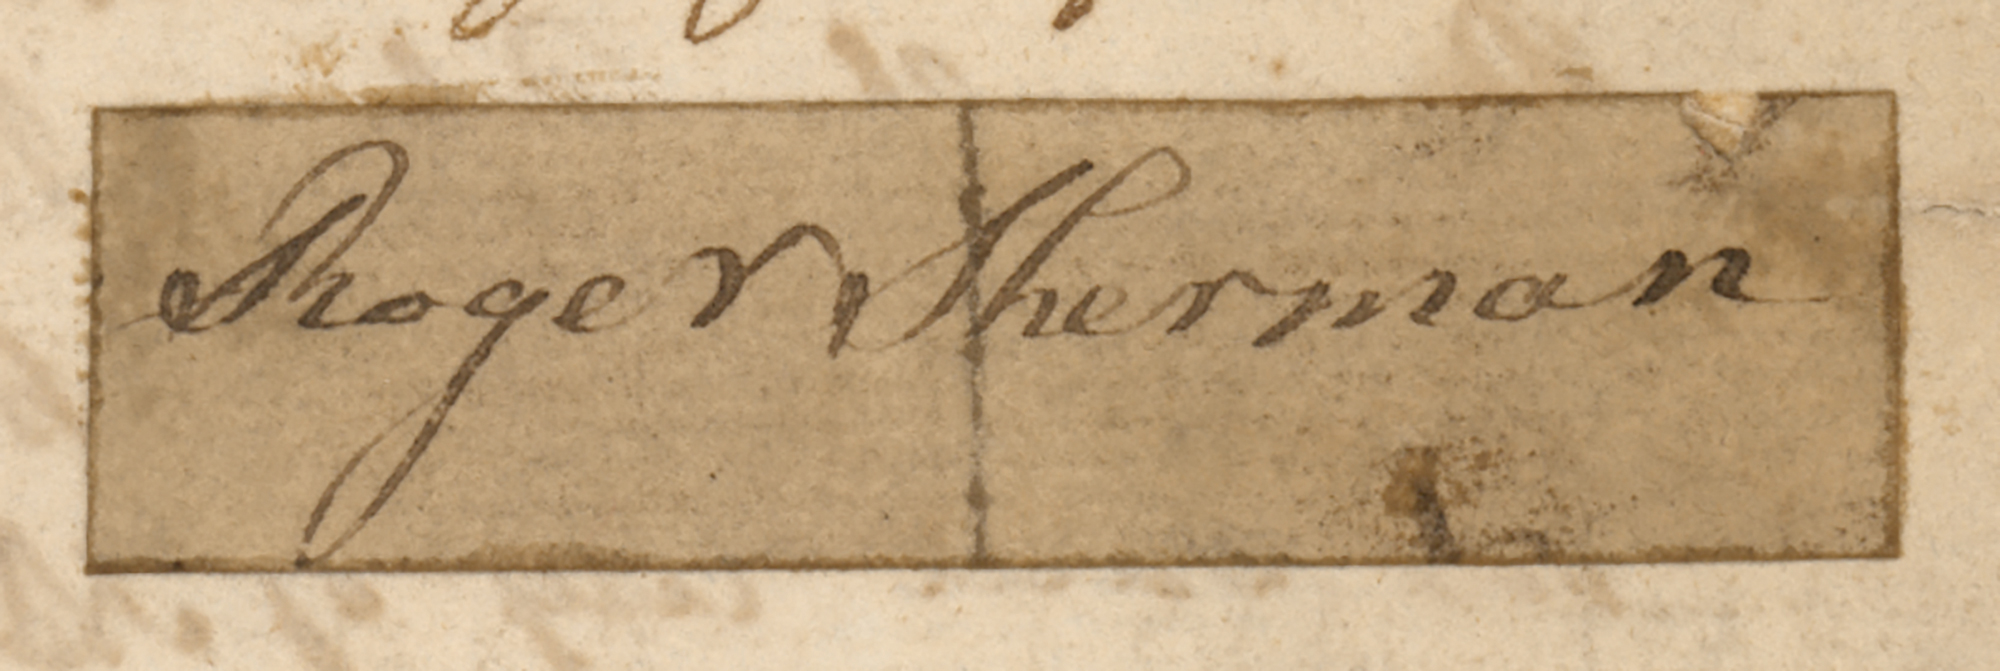 Roger Sherman